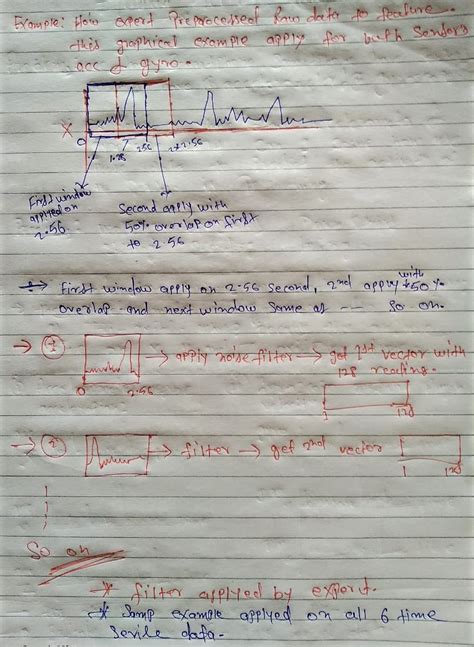 Example: How expert Preprocessed Raw data to feature.
this graphical example apply for both Sensors
acc & gyro.
X
0 1.28 2.56
First window
applyed on
2.56
Second apply with
50% overlap on first
to 2.56
First window apply on 2.56 second, 2nd apply with 50%
overlap and next window same as --- so on.
→ 1 → apply noise filter → get 1st vector with
128 reading.
0 2.56
1 128
→ 2 → filter → get 2nd vector
1 128
So on
* filter applyed by expert.
* Samp example applyed on all 6 time
Serile data.